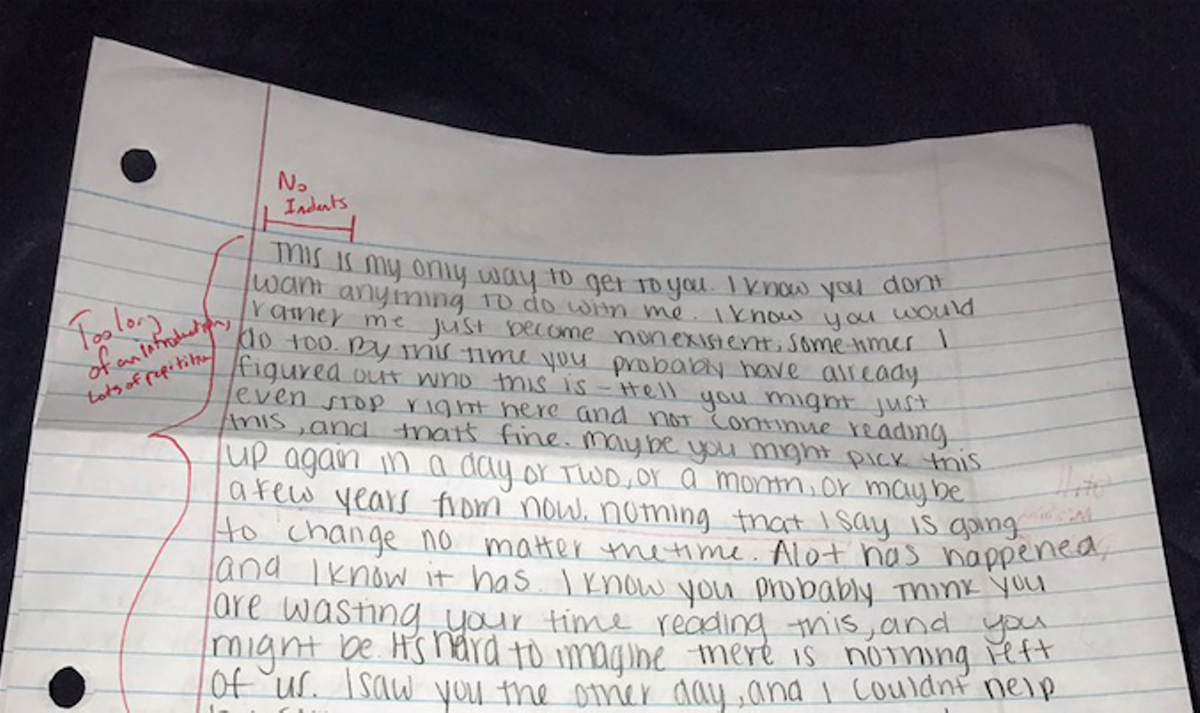 No
Indents
This is my only way to get to you. I know you dont
want anything to do with me. I know you would
rather me just become nonexistent, sometimes I
do too. By this time you probably have already
figured out who this is - Hell you might just
even stop right here and not continue reading
this, and that's fine. maybe you might pick this
up again in a day or two, or a month, or maybe
a few years from now. nothing that I say is going
to change no matter the time. Alot has happened,
and I know it has. I know you probably think you
are wasting your time reading this, and you
might be. It's hard to imagine there is nothing left
of us. I saw you the other day, and I couldnt help
Too long
of an introduction,
lots of repitition